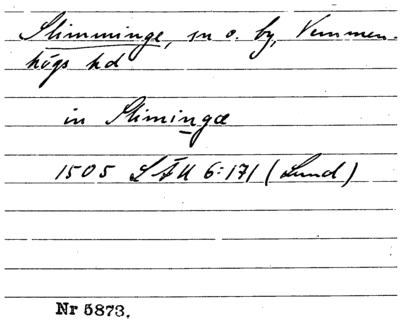 Slimminge, sn o. by, Vemmen-
högs hd
in Slimingæ
1505 LÄU 6:171 (Lund)
Nr 5873.